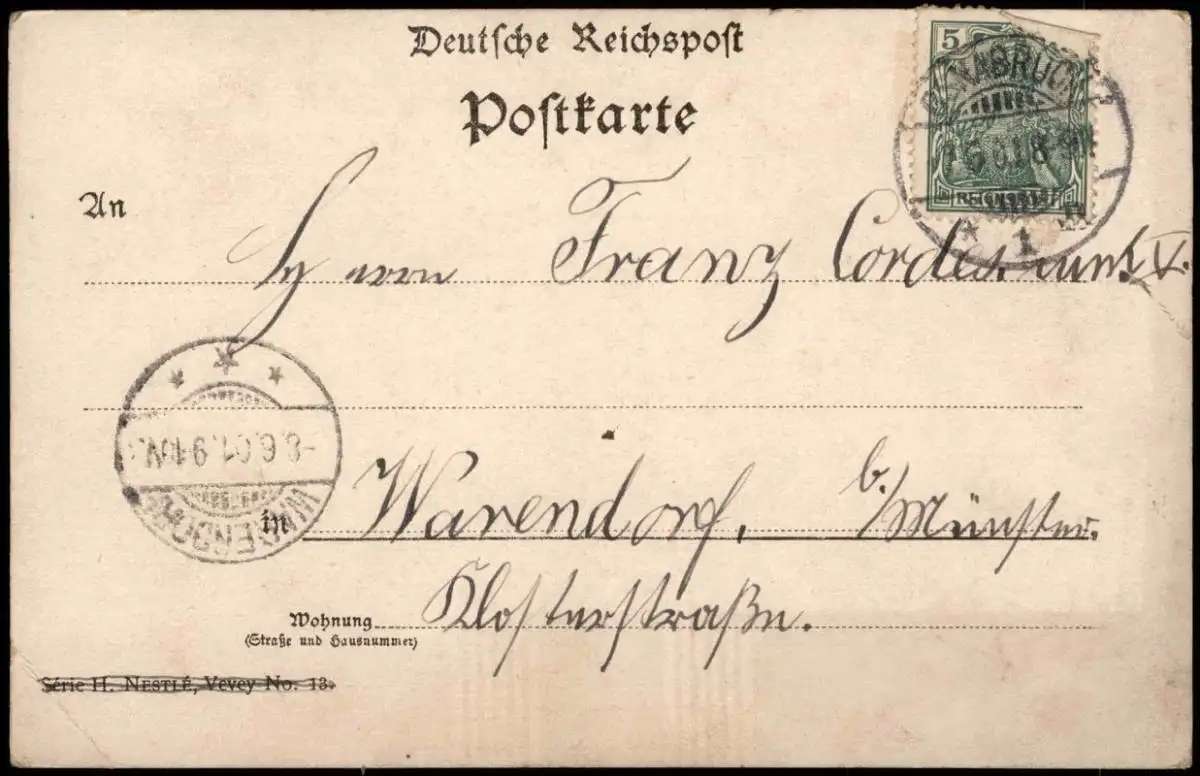 Deutsche Reichspost
Postkarte
5
REICHSPOST
1
An
Herrn Franz Cordes
-8.6.01.9-10V.
WARENDORF
in Warendorf, b./Münster.
Wohnung Klosterstraße.
(Straße und Hausnummer)
Série H. NESTLÉ, Vevey No. 13.